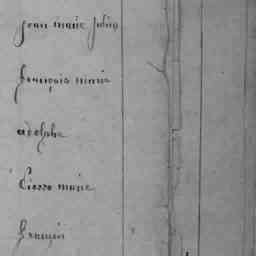 jean marie julien
françois marie
adolphe
Pierre marie
françois